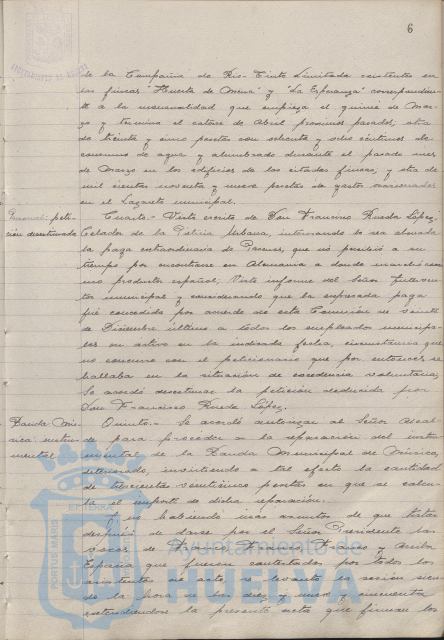 6
de la Compañía de Rio-Tinto Limitada existentes en
las fincas "Huerta de Mena" y "La Esperanza" correspondien-
te a la mensualidad que empieza el quince de Mar-
zo y termina el catorce de Abril proximos pasados; otra
de treinta y cinco pesetas con sesenta y ocho céntimos de
consumo de agua y alumbrado durante el pasado mes
de Marzo en los edificios de las citadas fincas, y otra de
mil cientos noventa y nueve pesetas de gastos ocasionados
en el Lazareto municipal.
Personal: peti-
ción desestimada
Cuarto.- Visto escrito de Don Francisco Rueda López,
Celador de la Policía Urbana, interesando le sea abonada
la paga extraordinaria de Pascuas, que no percibió a su
tiempo por encontrarse en Alemania a donde marchó co-
mo productor español; Visto informe del Señor Interven-
tor municipal y considerando que la expresada paga
fué concedida por acuerdo de esta Comisión de veinte
de Diciembre último a todos los empleados municipa-
les en activo en la indicada fecha, circunstancia que
no concurre con el peticionario que por entonces se
hallaba en la situación de excedencia voluntaria;
Se acordó desestimar la petición deducida por
Don Francisco Rueda López.
Banda Mú-
sica: instru-
mental
Quinto.- Se acordó autorizar al Señor Alcal-
de para proceder a la reparación del instru-
mental de la Banda Municipal de Música,
deteriorado, invirtiendo a tal efecto la cantidad
de trescientas veinticinco pesetas en que se calcu-
la el importe de dicha reparación.
Y no habiendo mas asuntos de que tratar
después de darse por el Señor Presidente las
voces de Franco, Franco, Franco y Arriba
España que fueron contestadas por todos los
asistentes al acto se levantó la sesión sien-
do la hora de las diez y nueve y cincuenta
extendiéndose la presente acta que firman los
PORTUS MARIS
ET TERRÆ
Ayuntamiento de
HUELVA